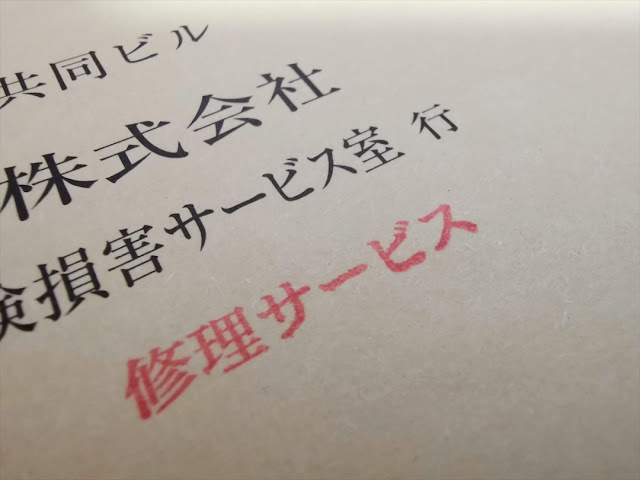 共同ビル
株式会社
険損害サービス室 行
修理サービス